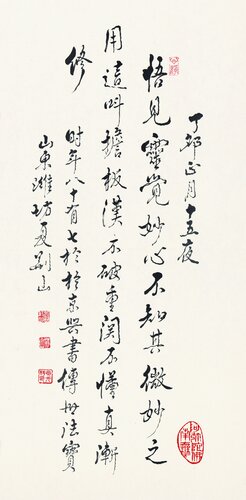 丁卯正月十五夜
悟見靈覺妙心不知其微妙之
用這叫擔板漢不破重關不懂真漸
修
時年八十有七於北京興書傳世法寶
山東濰坊夏荊山